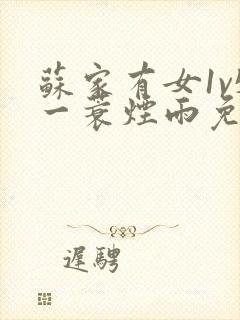 蘇家有女1v
一蓑煙雨免
遲騁